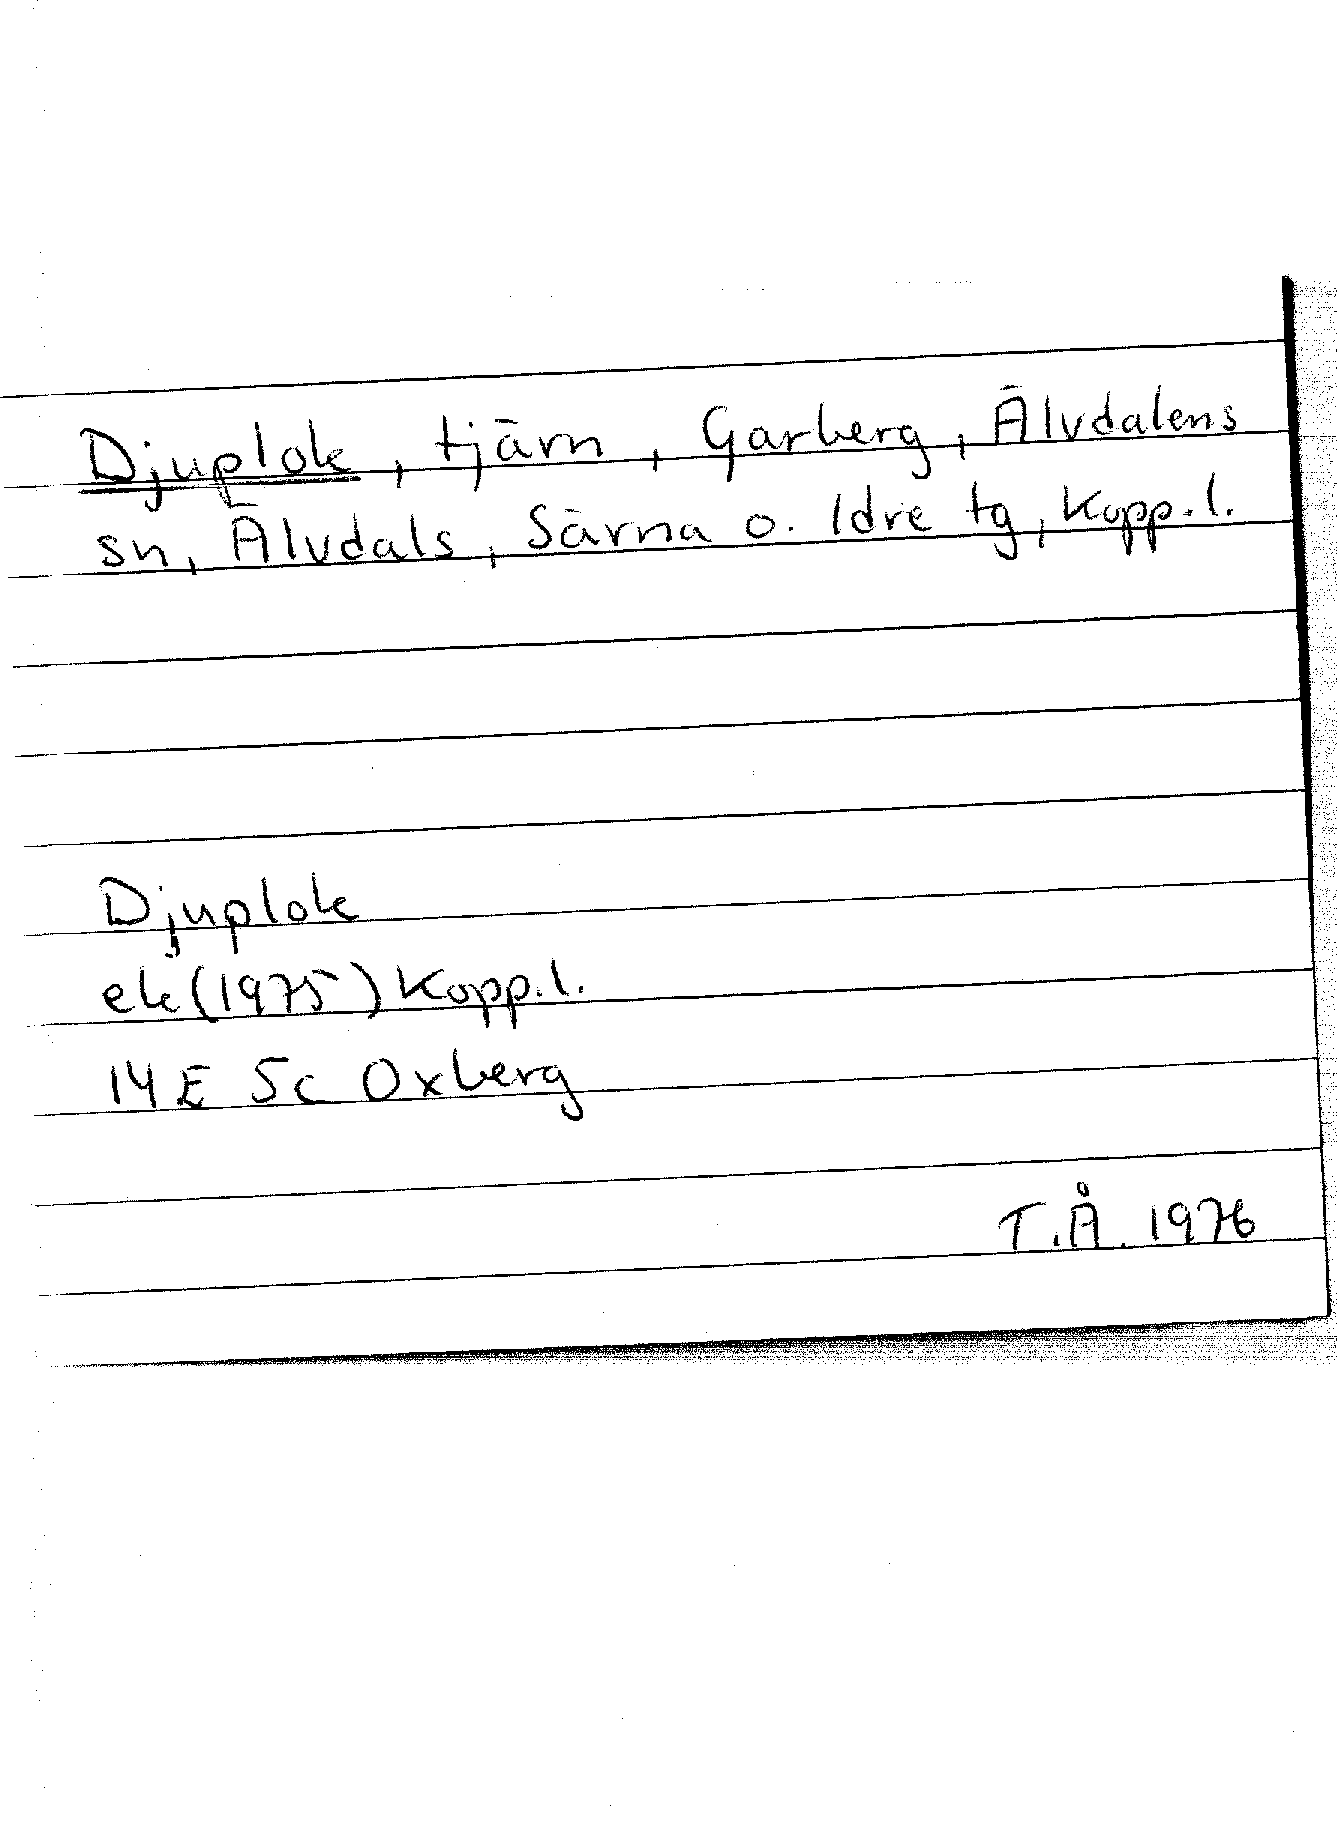 Djuplok, tjärn, Garberg, Älvdalens
sn, Älvdals, Särna o. Idre tg, Kopp.l.
Djuplok
ek(1975) Kopp.l.
14E 5c Oxberg
T.Å. 1976